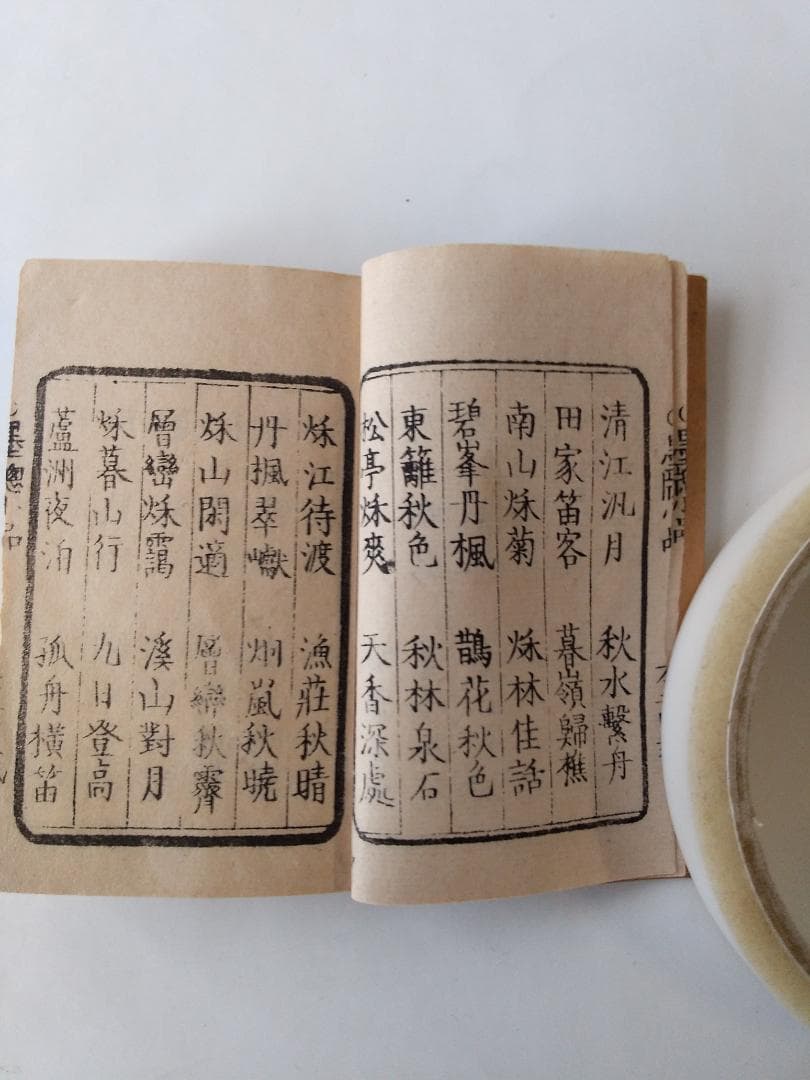 清江汎月 秋水繫舟
田家笛客 暮嶺歸樵
南山秌菊 秌林佳話
碧峯丹楓 鵲花秋色
東籬秋色 秋林泉石
松亭秌爽 天香深處
秌江待渡 漁莊秋晴
丹楓翠巘 烟嵐秋曉
秌山閑適 層巒秋霽
層巒秌靄 溪山對月
秌暮山行 九日登高
蘆洲夜泊 孤舟橫笛